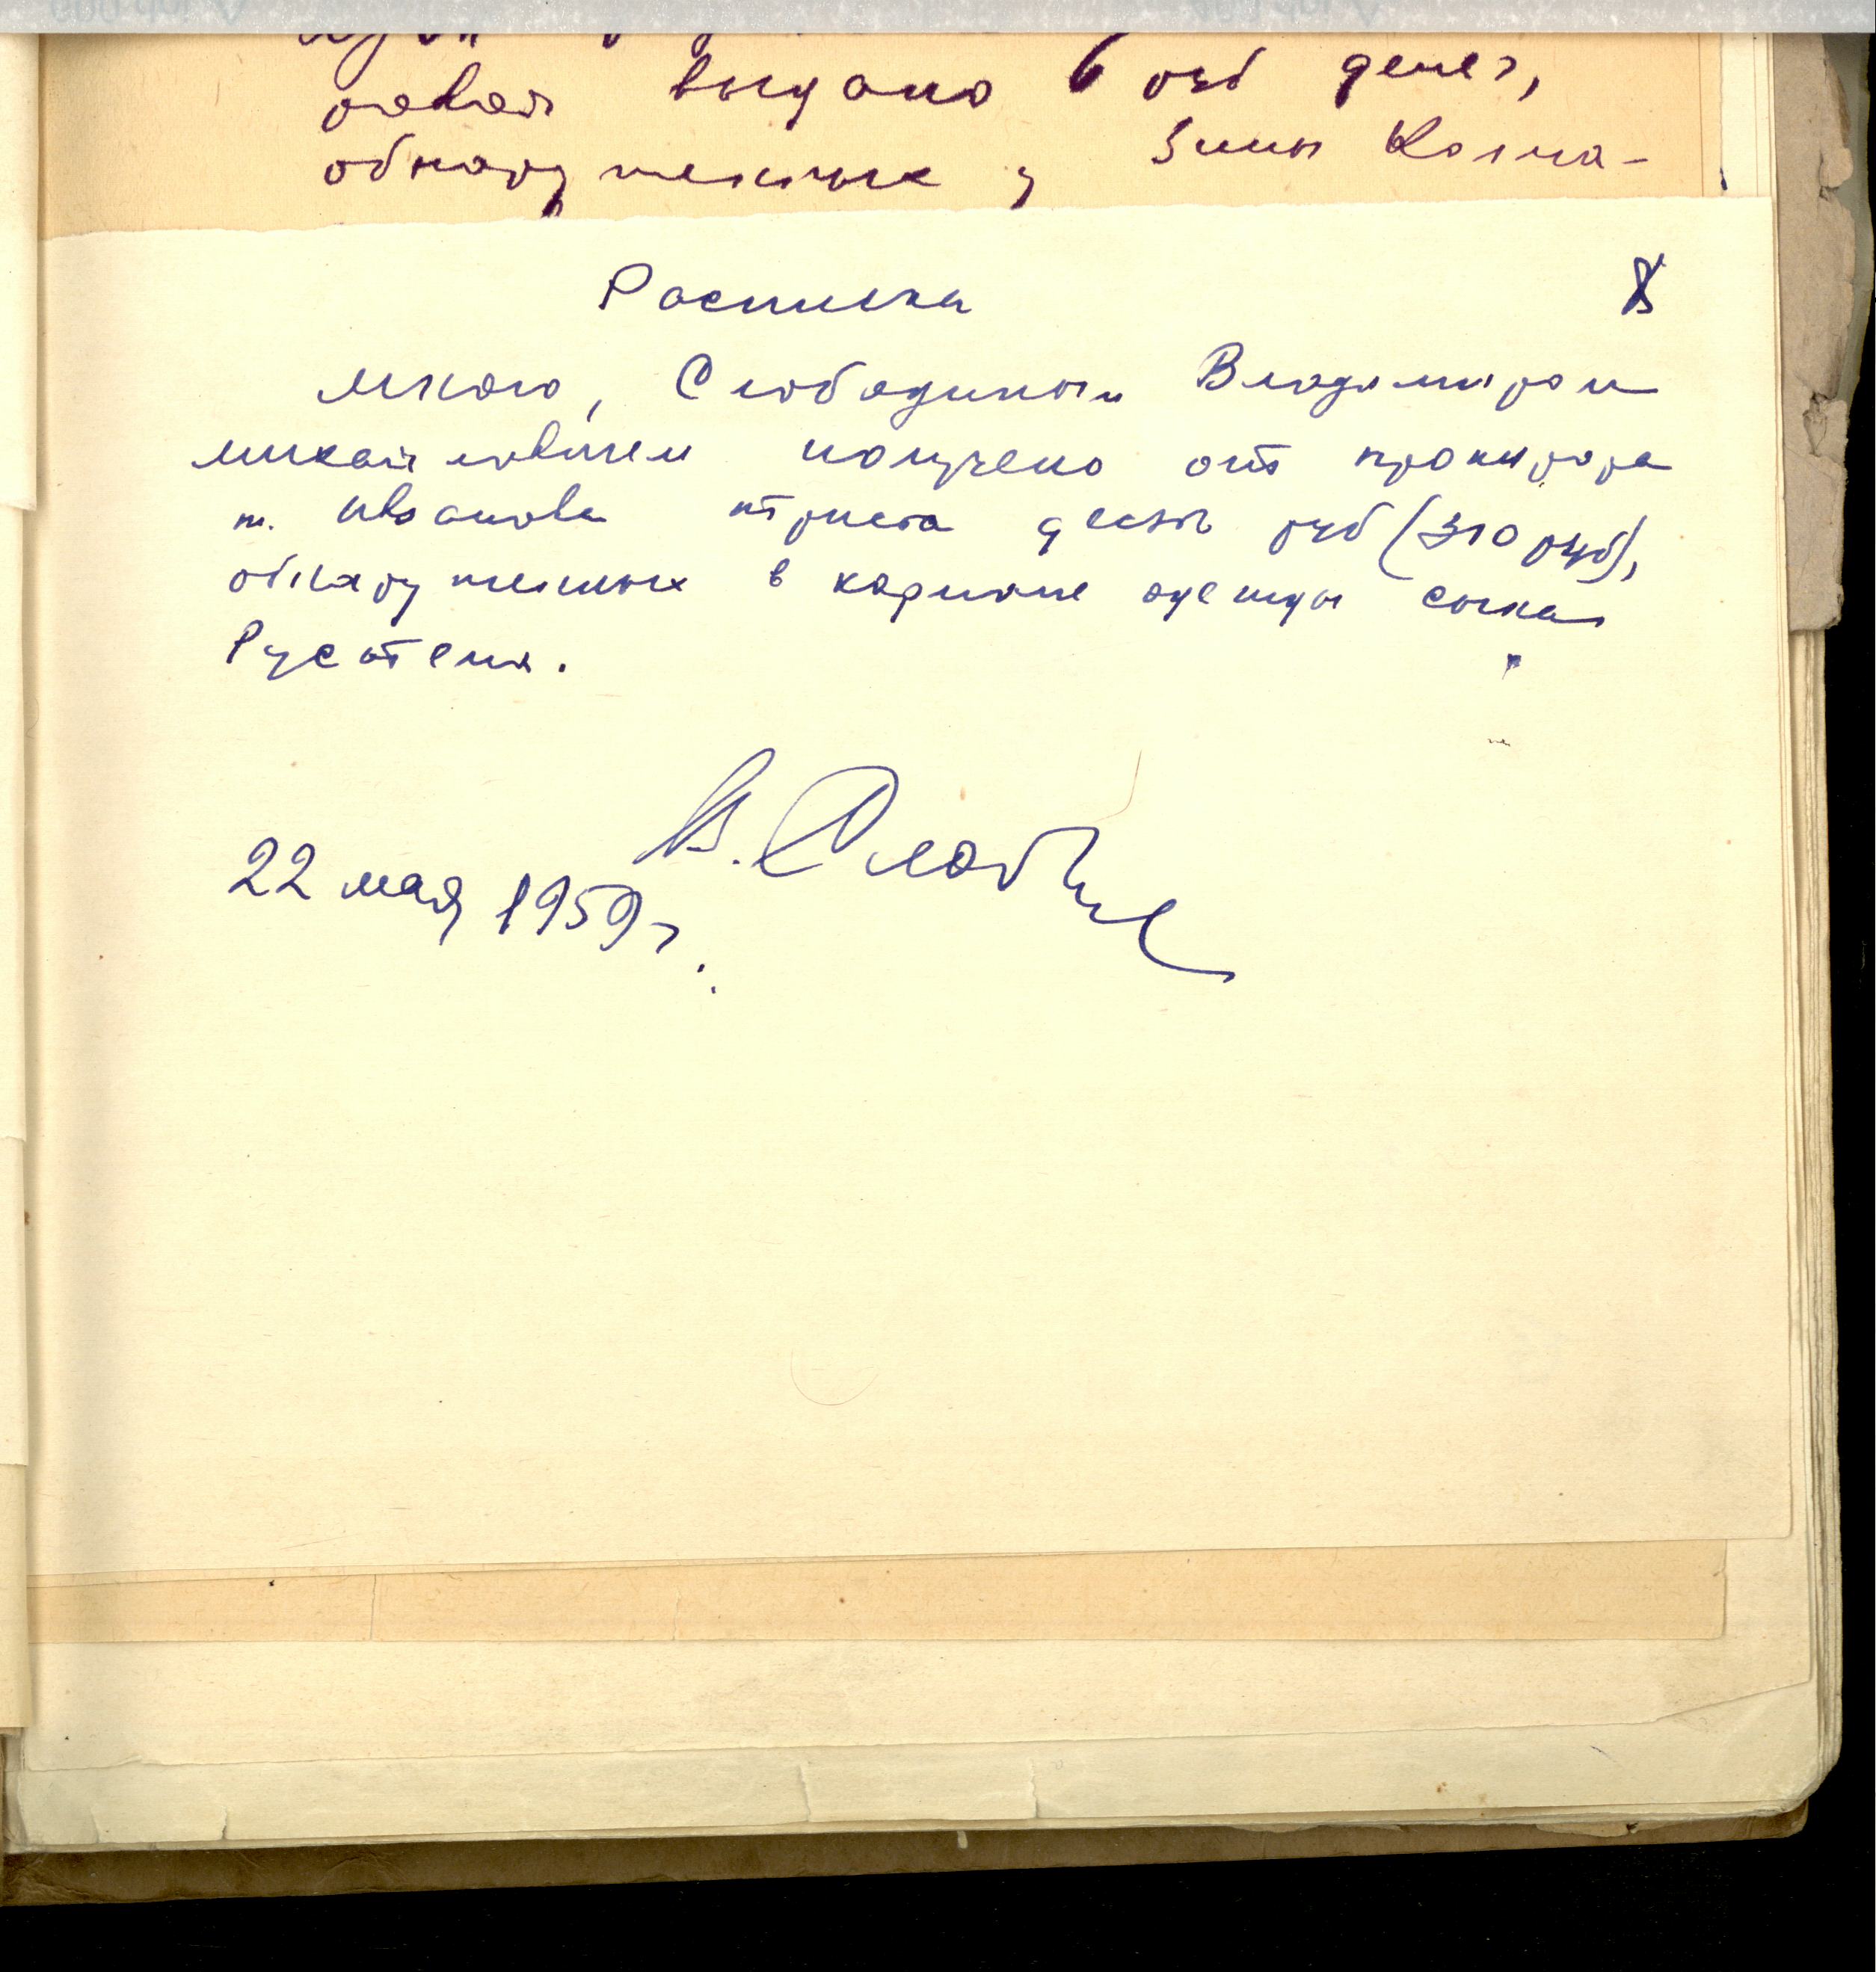 выдано 6 руб денег,
обнаруженных у Зины Колмо-
Расписка
Мною, Слободиным Владимиром
Михайловичем получено от прокурора
т. Иванова триста десять руб (310 руб),
обнаруженных в кармане одежды сына
Рустема.
В. Слобод
22 мая 1959 г.